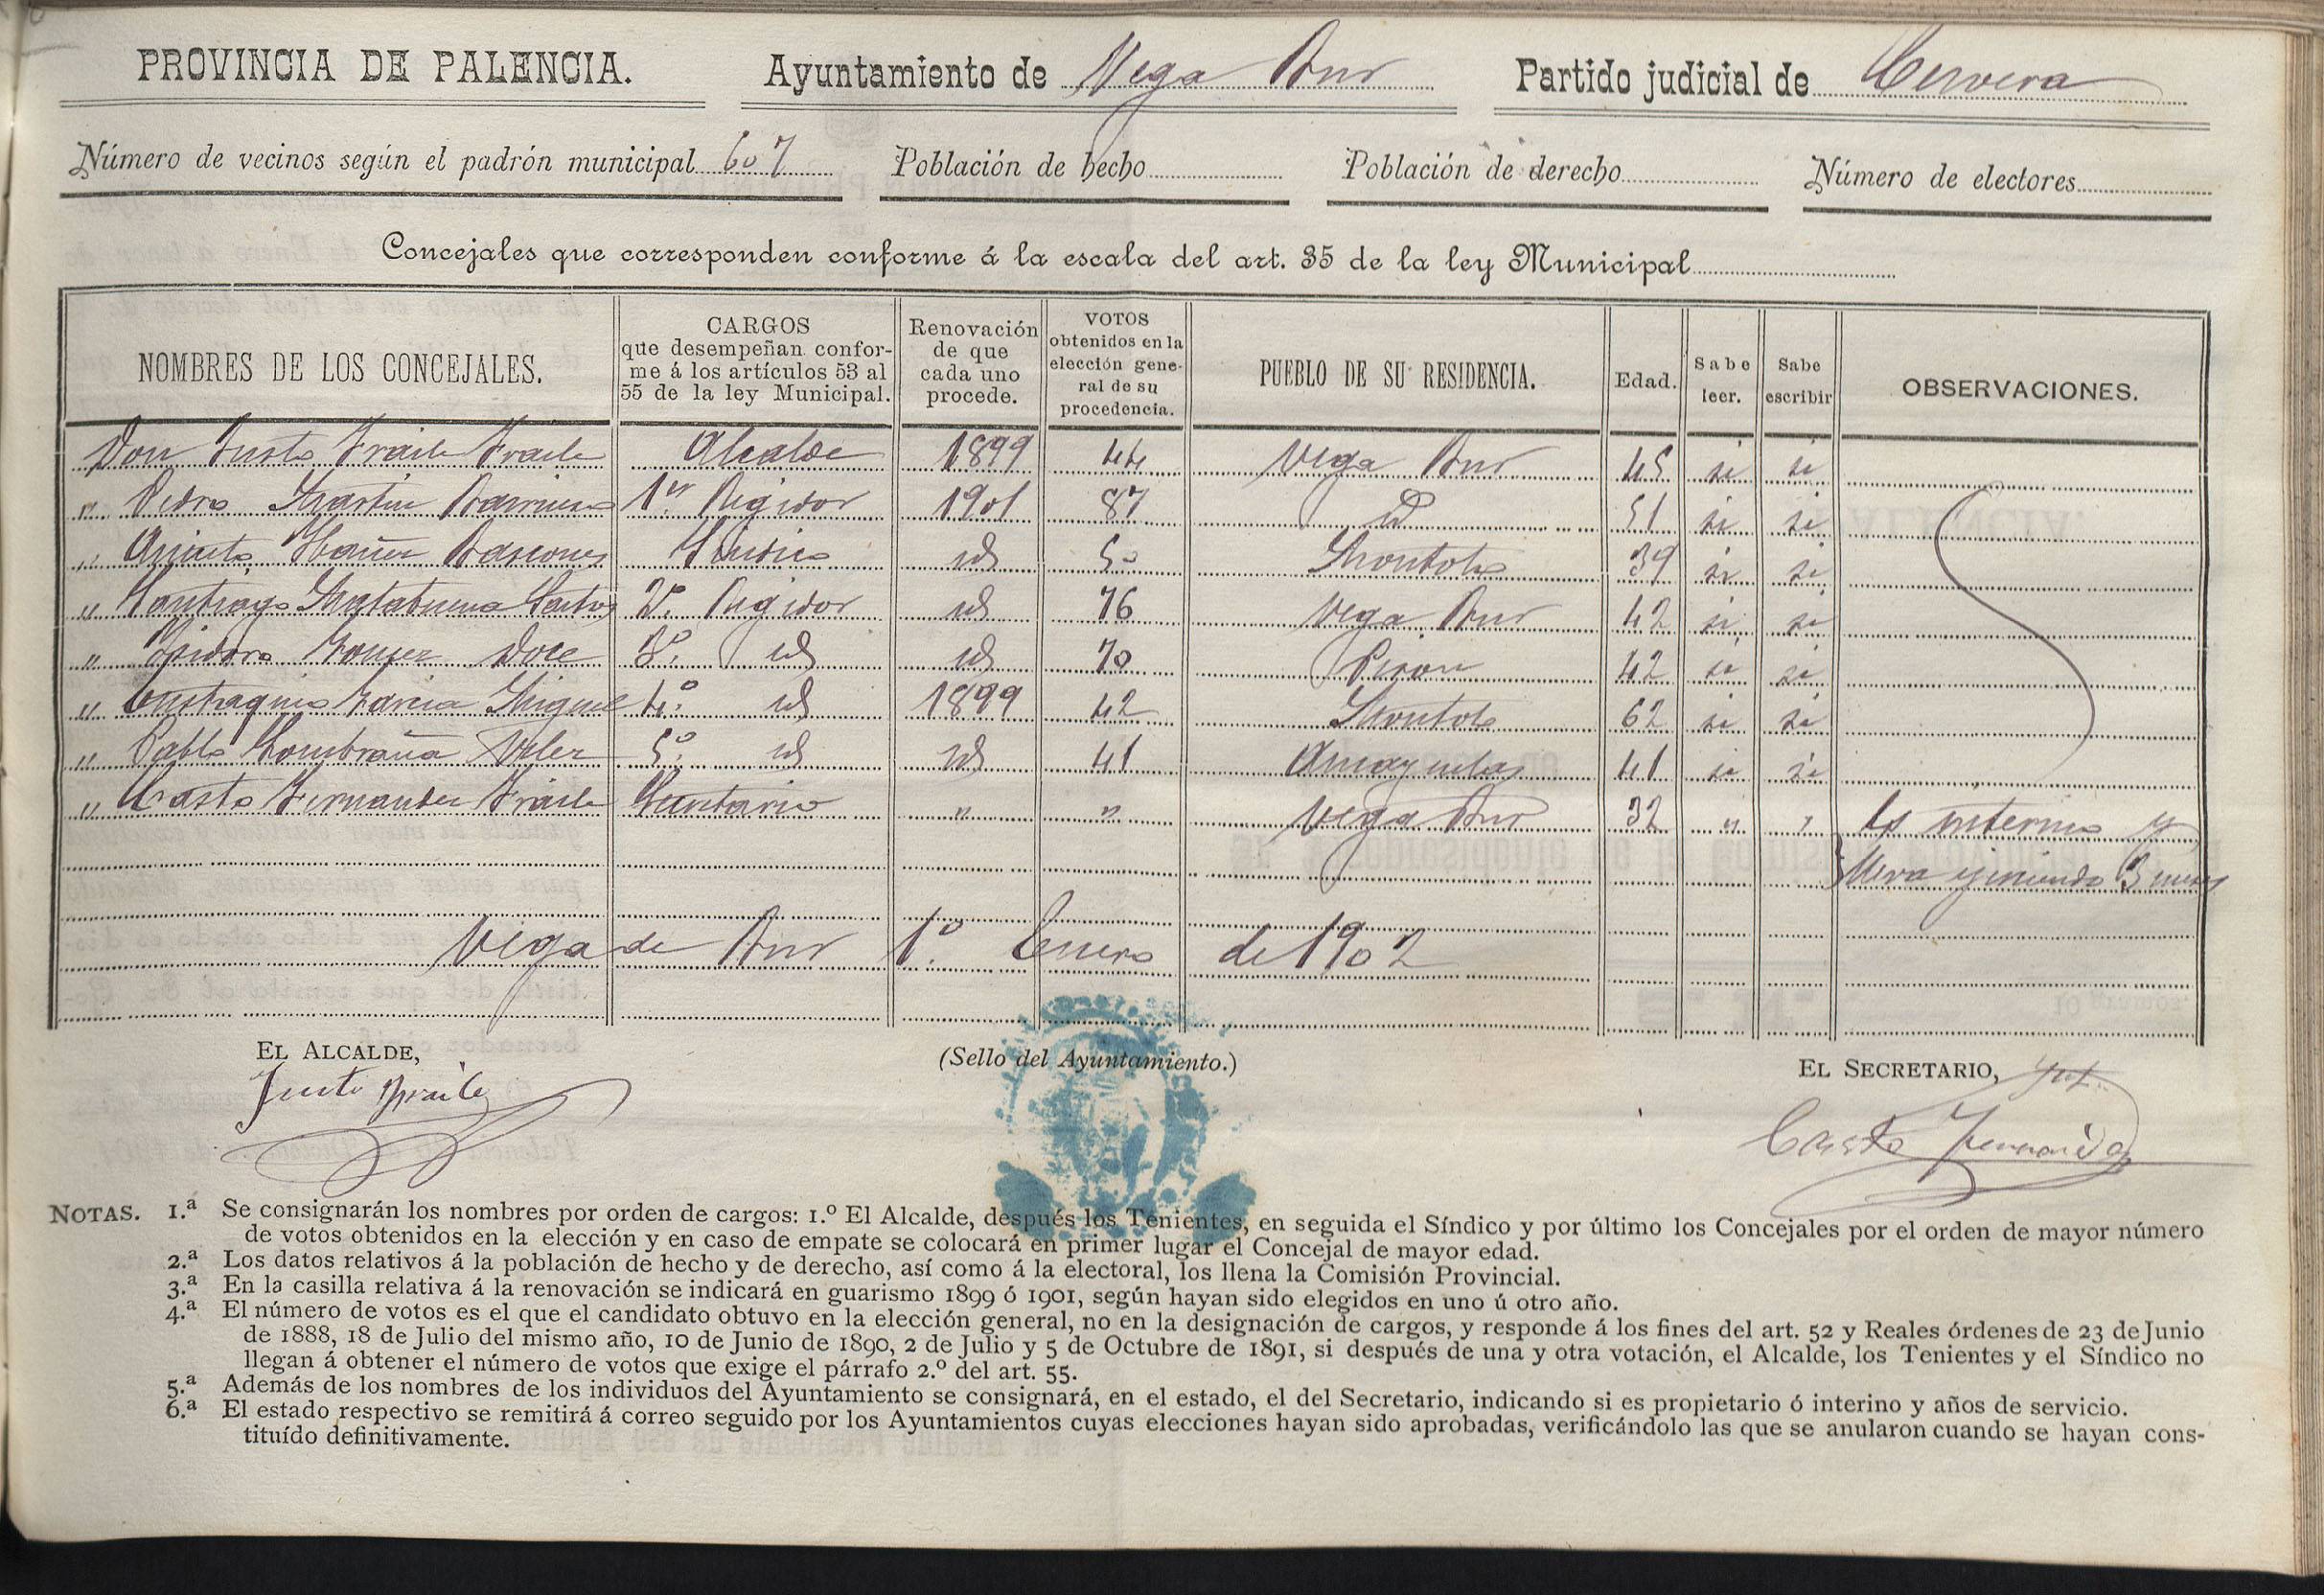 PROVINCIA DE PALENCIA. Ayuntamiento de Vega Bur Partido judicial de Cervera
Número de vecinos según el padrón municipal 607 Población de hecho Población de derecho Número de electores
Concejales que corresponden conforme á la escala del art. 35 de la ley Municipal
NOMBRES DE LOS CONCEJALES. CARGOS que desempeñan confor- me á los artículos 53 al 55 de la ley Municipal. Renovación de que cada uno procede. VOTOS obtenidos en la elección gene- ral de su procedencia. PUEBLO DE SU RESIDENCIA. Edad. Sabe leer. Sabe escribir OBSERVACIONES.
Don Justo Fraile Fraile Alcalde 1899 44 Vega Bur 45 si si
" Pedro Martin Barriuso 1er Regidor 1901 87 id 51 si si
" Aniceto Ibañez Bascones Sindico id 50 Montoto 39 si si
" Santiago Matabuena Santos 2º Regidor id 76 Vega Bur 42 si si
" Isidoro Gomez Doce 3º id id 70 Pison 42 si si
" Eustaquio Garcia Miguel 4º id 1899 42 Montoto 62 si si
" Pablo Lombraña Velez 5º id id 41 Amayuelas 41 si si
" Casto Fernandez Fraile Secretario " " Vega Bur 32 " " Es interino y
lleva ejerciendo 3 meses
Vega de Bur 1º Enero de 1902
EL ALCALDE, (Sello del Ayuntamiento.) EL SECRETARIO,
Justo Fraile Casto Fernandez
NOTAS. 1.ª Se consignarán los nombres por orden de cargos: 1.º El Alcalde, después los Tenientes, en seguida el Síndico y por último los Concejales por el orden de mayor número
de votos obtenidos en la elección y en caso de empate se colocará en primer lugar el Concejal de mayor edad.
2.ª Los datos relativos á la población de hecho y de derecho, así como á la electoral, los llena la Comisión Provincial.
3.ª En la casilla relativa á la renovación se indicará en guarismo 1899 ó 1901, según hayan sido elegidos en uno ú otro año.
4.ª El número de votos es el que el candidato obtuvo en la elección general, no en la designación de cargos, y responde á los fines del art. 52 y Reales órdenes de 23 de Junio
de 1888, 18 de Julio del mismo año, 10 de Junio de 1890, 2 de Julio y 5 de Octubre de 1891, si después de una y otra votación, el Alcalde, los Tenientes y el Síndico no
llegan á obtener el número de votos que exige el párrafo 2.º del art. 55.
5.ª Además de los nombres de los individuos del Ayuntamiento se consignará, en el estado, el del Secretario, indicando si es propietario ó interino y años de servicio.
6.ª El estado respectivo se remitirá á correo seguido por los Ayuntamientos cuyas elecciones hayan sido aprobadas, verificándolo las que se anularon cuando se hayan cons-
tituído definitivamente.